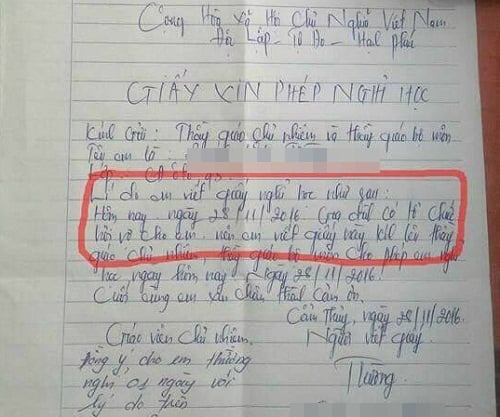 Cộng Hòa Xã Hội Chủ Nghĩa Việt Nam
Độc Lập - Tự Do - Hạnh Phúc
GIẤY XIN PHÉP NGHỈ HỌC
Kính Gửi: Thầy giáo chủ nhiệm và thầy giáo bộ môn
Tên em là:
Lớp: CĐ
Lí do em viết giấy nghỉ học như sau:
Hôm nay ngày 28/11/2016. Gia đình có tổ chức
hỏi vợ cho em nên em viết giấy này kí lên thầy
giáo chủ nhiệm, thầy giáo bộ môn cho phép em nghỉ
học ngày hôm nay. Ngày 28/11/2016.
Cuối cùng em xin chân thành cảm ơn.
Cẩm Thủy, ngày 28/11/2016.
Giáo viên chủ nhiệm.
Người viết giấy
Đồng ý cho em Thưởng
nghỉ 01 ngày với
lý do trên
Thưởng